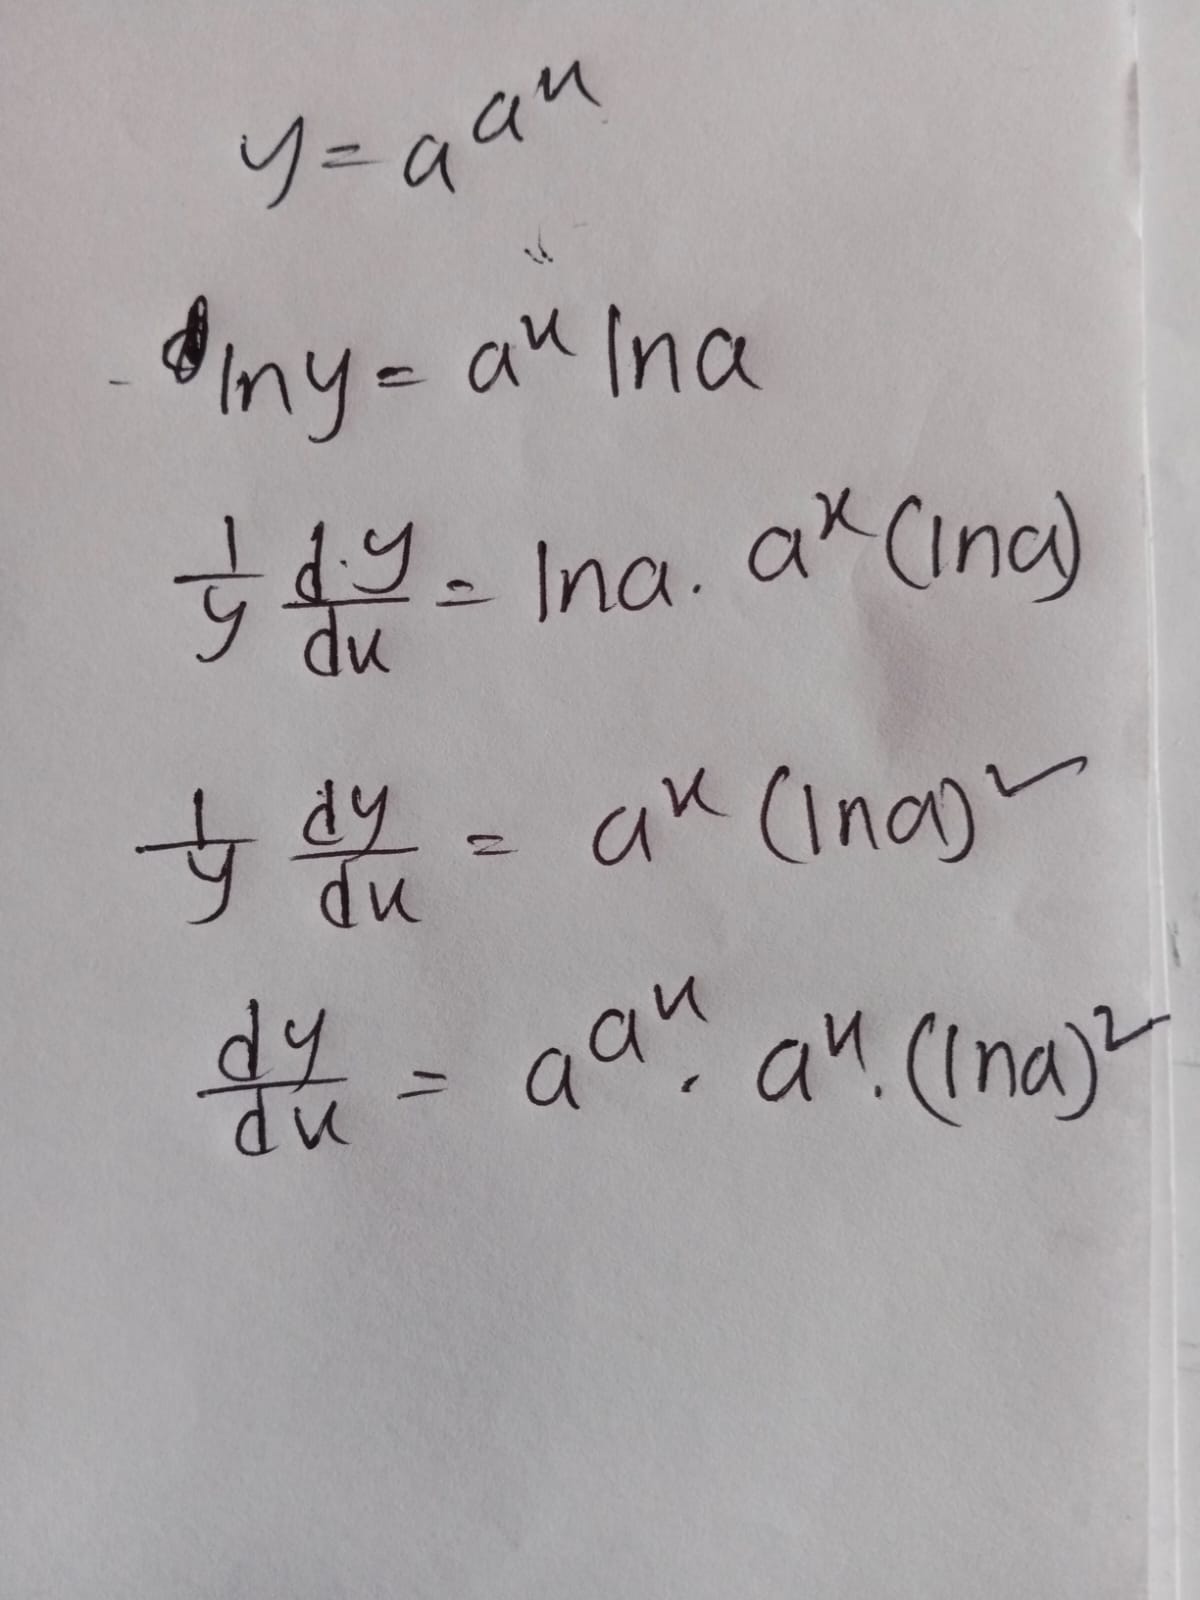 y = a^a^x
ln y = a^x ln a
1/y d.y/dx = ln a . a^x (ln a)
1/y dy/dx = a^x (ln a)^2
dy/dx = a^a^x . a^x . (ln a)^2